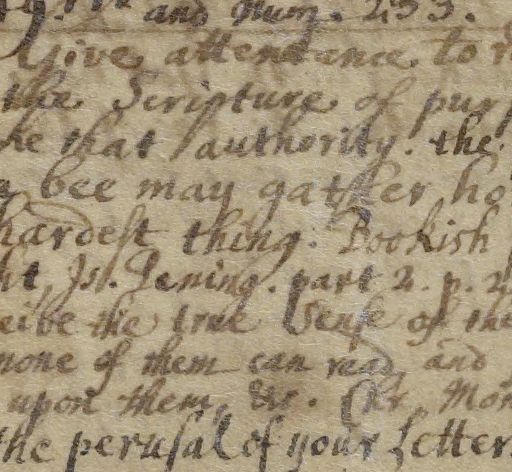 and Numb. 233.
Give attendance to r
the Scripture of purp
he that authority. the
bee may gather ho
hardest thing. Bookish
ht, Is. Jening. part 2. p. 2
ceibe the true Sense of the
none of them can read, and
upon them, &c. Chr. Mon
the perusal of your Letter